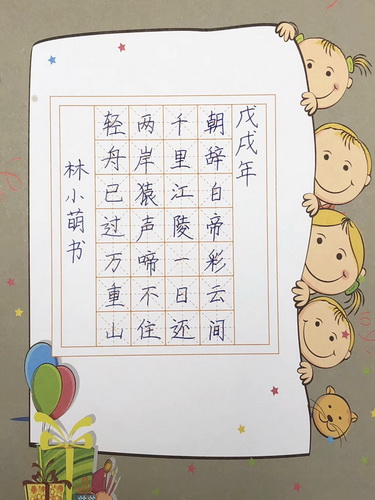 戊戌年
朝辞白帝彩云间
千里江陵一日还
两岸猿声啼不住
轻舟已过万重山
林小萌书